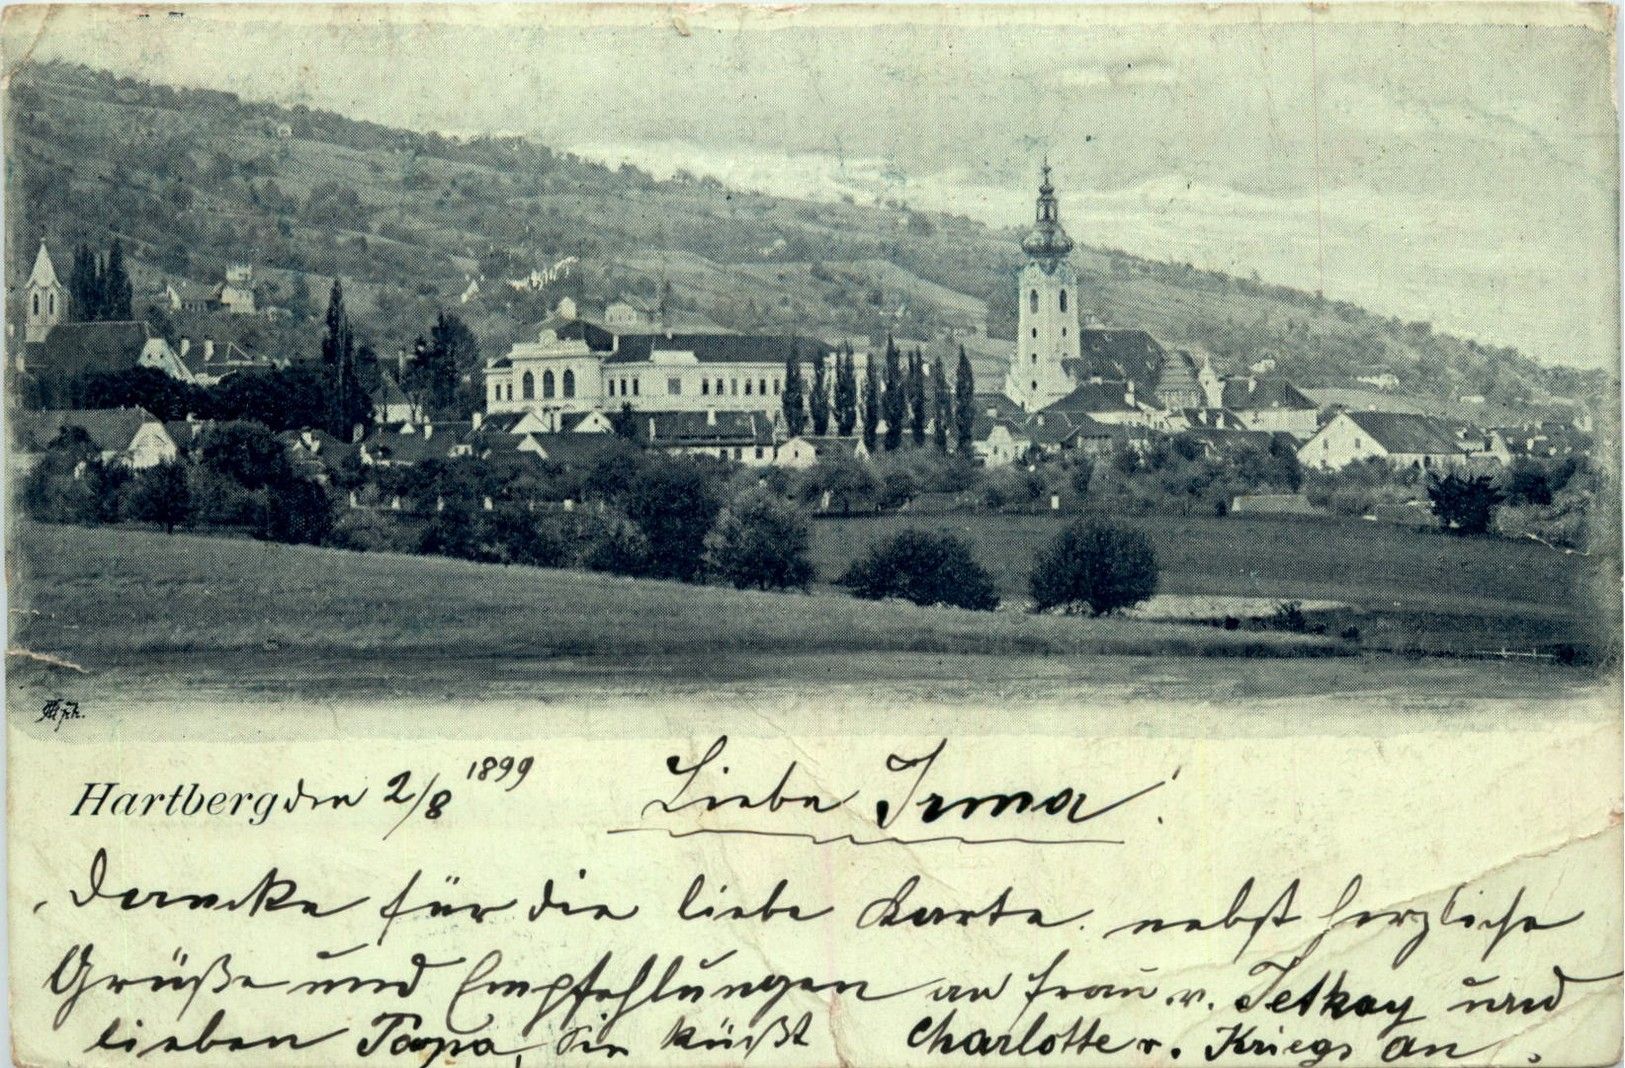 Hartberg den 2/8 1899
Liebe Irma!
Dancke für die liebe Karte. nebst herzliche
Grüße und Empfehlungen an Frau v. Tetkay und
lieben Papa, die küßt Charlotte v. Kriegs an.